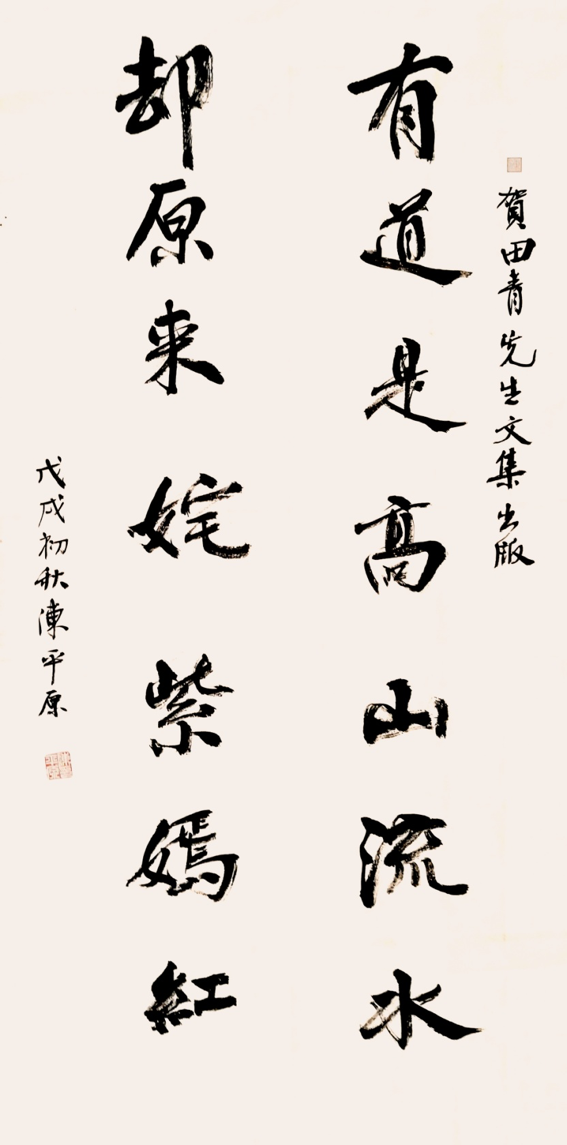 賀田青先生文集出版
有道是高山流水
却原来姹紫嫣紅
戊戌初秋陳平原